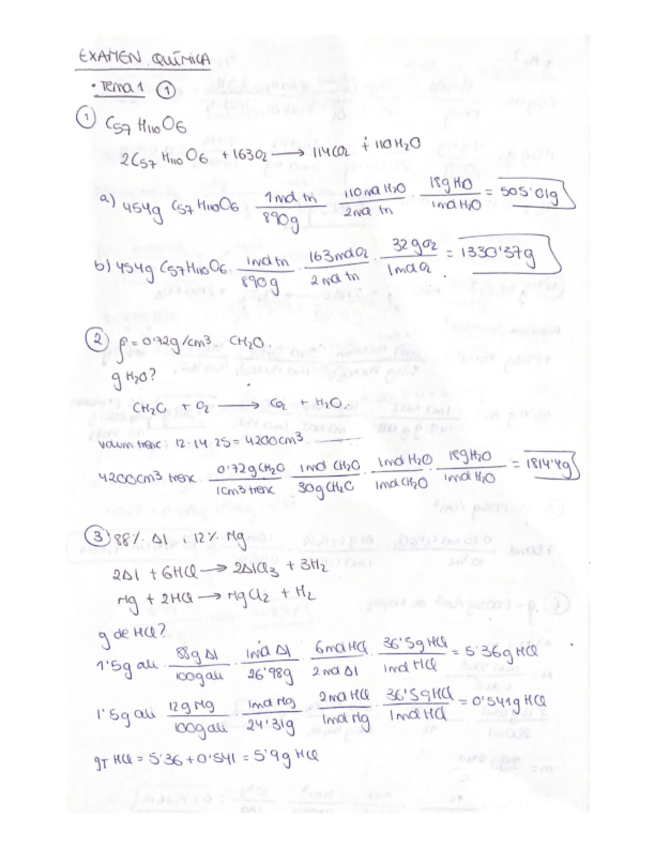 EXAMEN QUÍMICA
· Tema 1 ①
① C57 H110 O6
2C57 H110 O6 + 163O2 → 114CO2 + 110H2O
a) 454g C57H110O6 · 1mol tri / 890g · 110mol H2O / 2mol tri · 18g H2O / 1mol H2O = 505'01g
b) 454g C57H110O6 · 1mol tri / 890g · 163mol O2 / 2mol tri · 32g O2 / 1mol O2 = 1330'37g
② ρ = 0'72g/cm3. CH2O.
g H2O?
CH2O + O2 → CO2 + H2O.
volum tronc: 12·14·25 = 4200cm3
4200cm3 tronc · 0'72g CH2O / 1cm3 tronc · 1mol CH2O / 30g CH2O · 1mol H2O / 1mol CH2O · 18g H2O / 1mol H2O = 1814'4g
③ 88% Al i 12% Mg
2Al + 6HCl → 2AlCl3 + 3H2
Mg + 2HCl → MgCl2 + H2
g de HCl?
1'5g ali · 88g Al / 100g ali · 1mol Al / 26'98g · 6mol HCl / 2mol Al · 36'5g HCl / 1mol HCl = 5'36g HCl
1'5g ali 12g Mg / 100g ali · 1mol Mg / 24'31g · 2mol HCl / 1mol Mg · 36'5g HCl / 1mol HCl = 0'541g HCl
gT HCl = 5'36 + 0'541 = 5'9g HCl